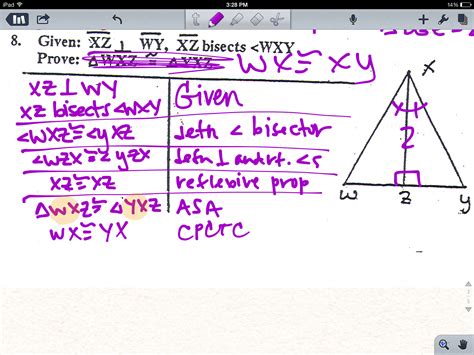 iPad
3:28 PM
14%
8. Given: XZ ⊥ WY, XZ bisects <WXY
Prove: △WXZ ≅ △YXZ WX ≅ XY
XZ ⊥ WY
XZ bisects <WXY
Given
<WXZ ≅ <YXZ defn < bisector
<WZX ≅ < YZX defn ⊥ and rt. <s
XZ ≅ XZ reflexive prop
△WXZ ≅ △YXZ ASA
WX ≅ YX CPCTC
X
2
W Z Y